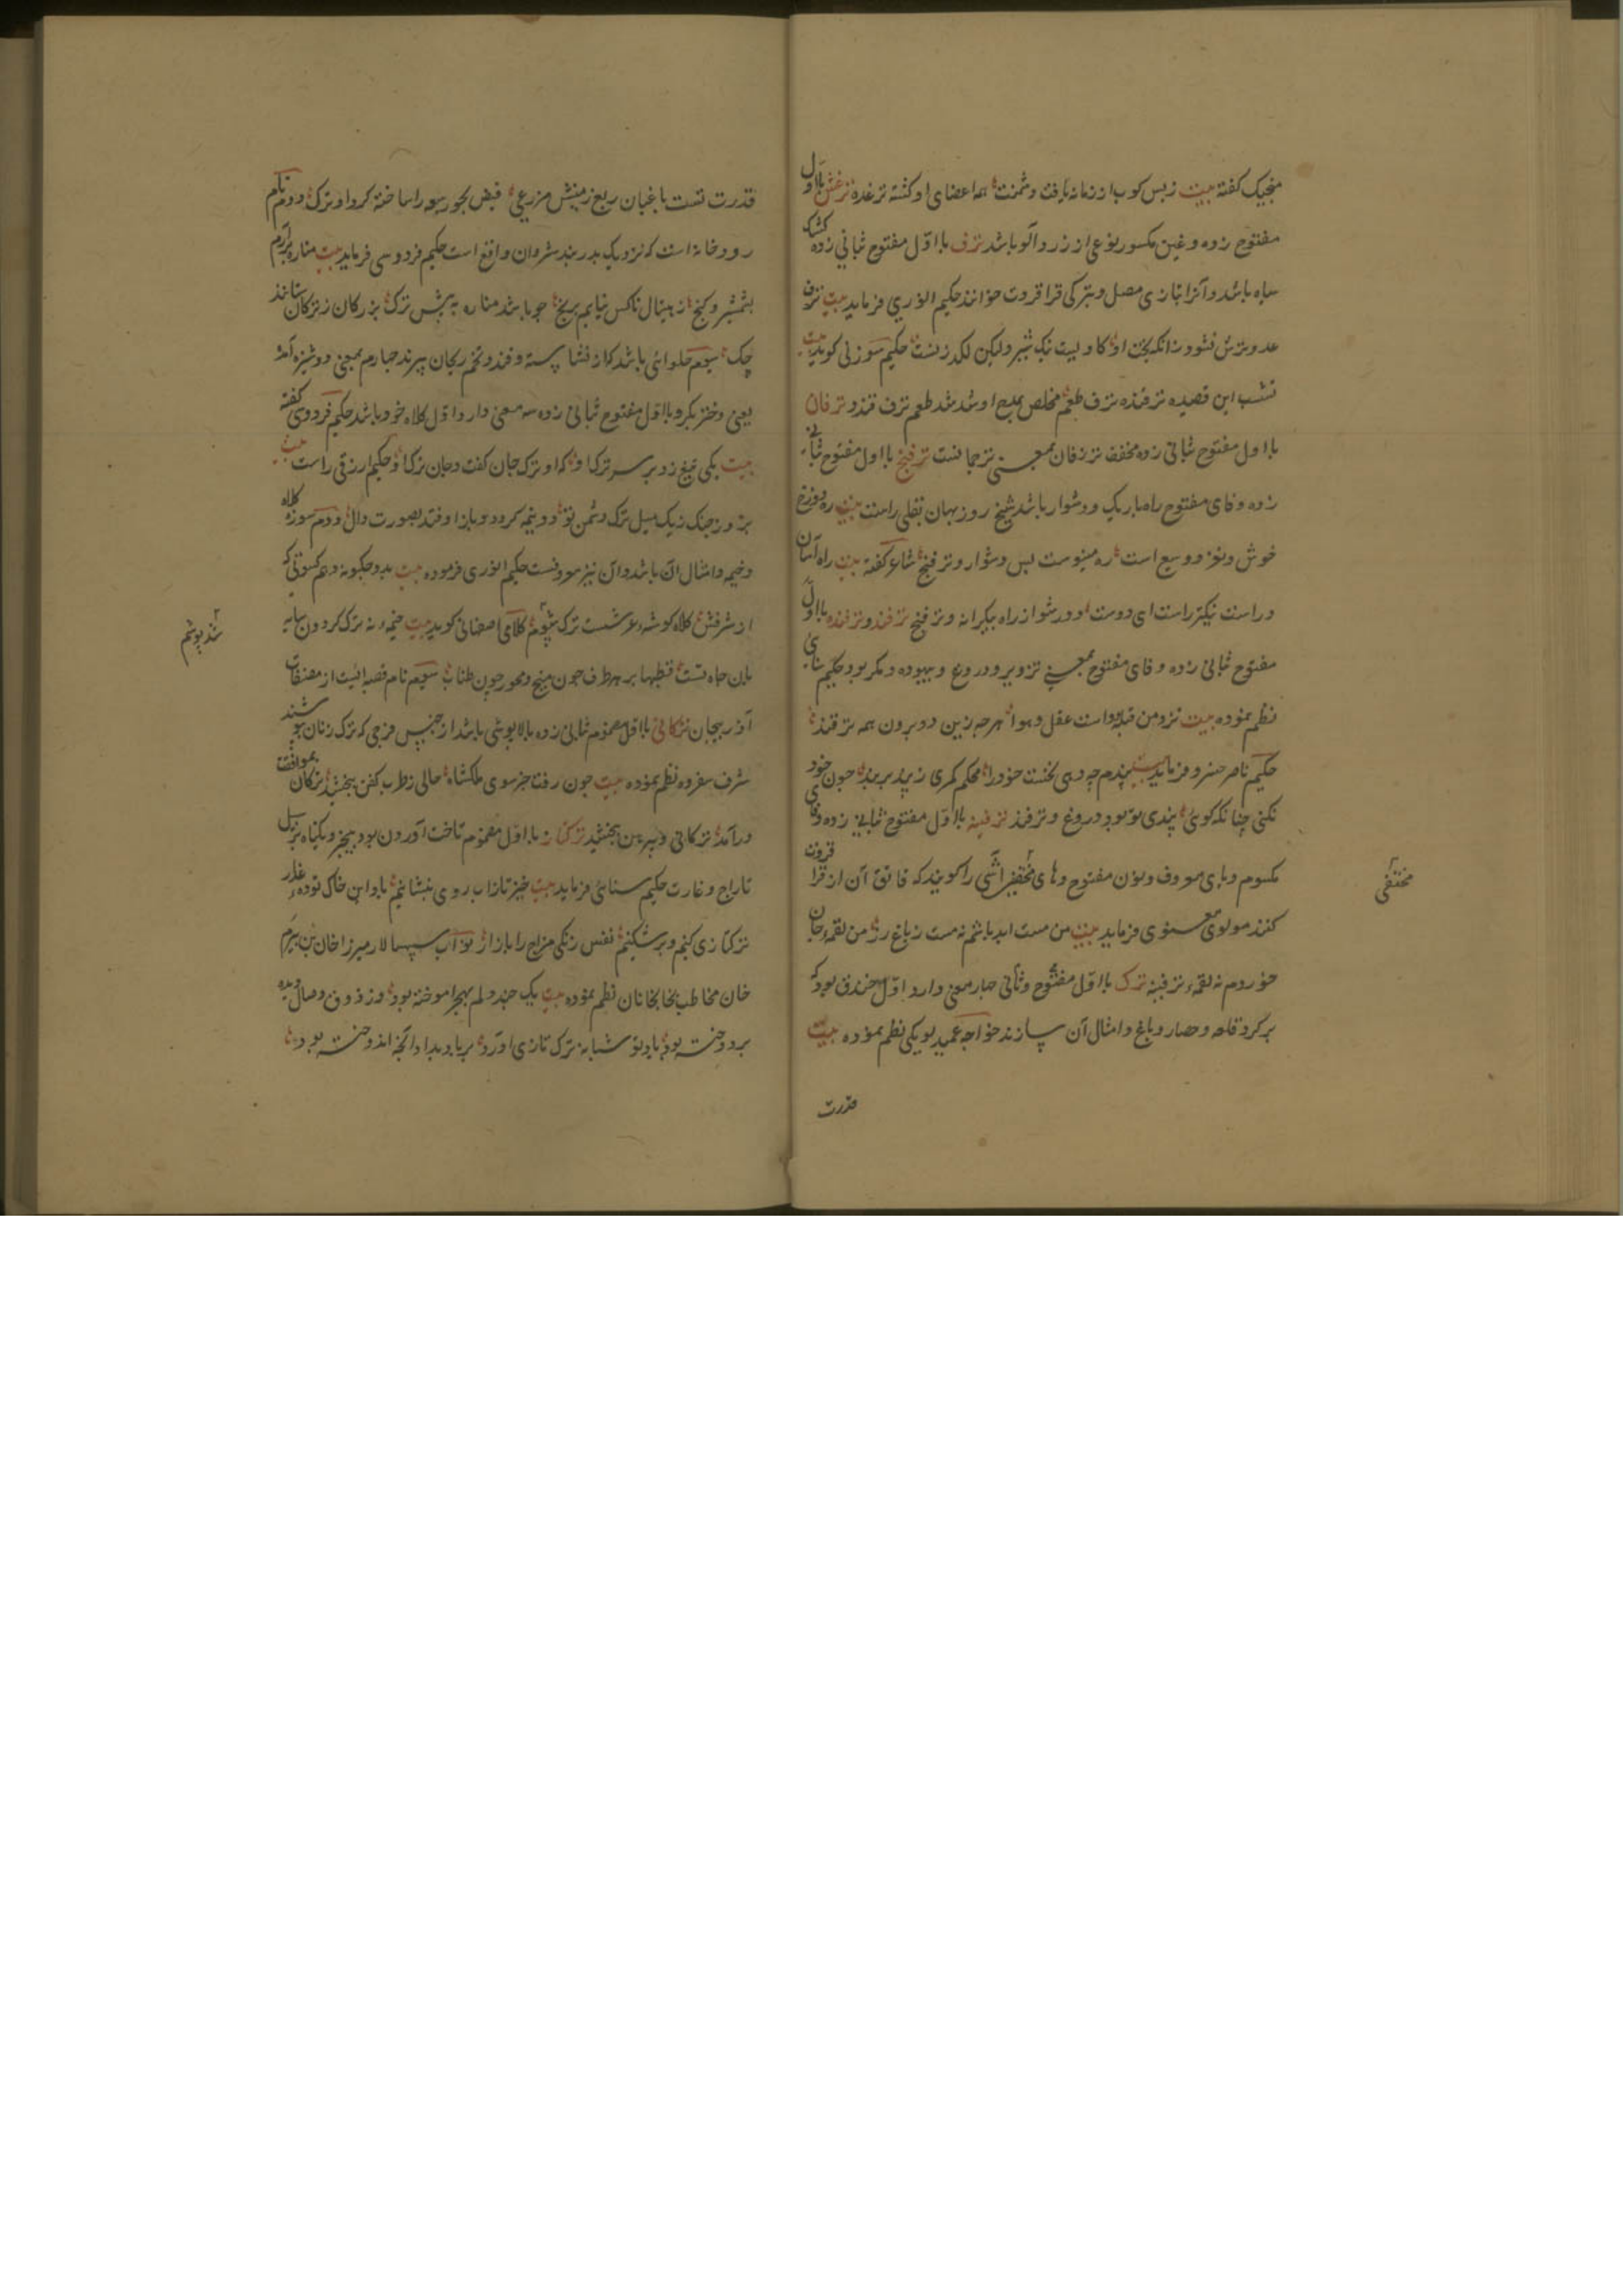 منجیک کفته بیت زبس کوب از زمانه یافت دشمنت همه اعضای او کشته ترغده ترغش بااول
مفتوح زده و غین مکسور نوعی از زردآلو باشد ترف بااول مفتوح ثبانی زده کشک
سیاه باشد و آنرا بتازی مصل و بترکی قراقروت خوانند حکیم انوری فرماید بیت ترف
عدو ترش نشود زانکه بخت او کاولیست نیک شیر ولیکن لکدزنست حکیم سوزنی کوید بیت
تشبیب این قصیده ترفنده ترف طعم مخلص بمدح او شد شد طعم ترف قند و ترفان
بااول مفتوح ثبانی زده مخفف ترزفان بمعنی ترجمانست ترفنج بااول مفتوح ثبانی
زده و فای مفتوح راه باریک و دشوار باشد شیخ روزبهان بقلی راست بیت ره دوزخ
خوش و نغز و وسیع است ره مینوست بس دشوار و ترفنج شاعر کفته بیت راه آسان
و راست نیکتر است ای دوست دور شو از راه بیکرانه و ترفنج ترفند و ترفنده بااول
مفتوح ثبانی زده و فای مفتوح بمعنی تزویر و دروغ و بیهوده و مکر بود حکیم سنایی
نظم نموده بیت نزد من قبله دواست عقل و هوا هر چه زین دو برون همه ترفند
حکیم ناصر خسرو فرماید بیت پندم چه دهی نخست خود را محکم کمری ز پند بربند چون خود
نکنی چنانکه کویی پندی تو بود دروغ و ترفند ترفینه بااول مفتوح ثبانی زده و فای
مکسور و یای معروف و نون مفتوح و های مخفی آشی را کویند که قاتق آن از قراقروت
کنند مولوی معنوی فرماید بیت من مست ابد باشم نه مست ز باغ رز من لقمه جان
خوردم نه لقمه ترفینه ترک بااول مفتوح و ثانی چهار معنی دارد اول خندق بود که
بر کرد قلعه و حصار و باغ و امثال آن سازند خواجه عمید لویکی نظم نموده بیت
قدرت
مختفی
قدرت تست باغبان ربع زمینش مزرعی فیض بحور سبعه را ساخته کرد او ترک دوم نام
رودخانه است که نزدیک بدربند شروان واقع است حکیم فردوسی فرماید بیت مناره برآرم
بشمشیر و کنج ز هیتال ناکس نیایم برنج چو باشد مناره به پیش ترک بزرکان ز ترکان ستانند
چک سیوم حلوائی باشد که از نشاسته و قند و تخم ریحان پزند چهارم بمعنی دوشیزه آمده
یعنی دختر بکر و بااول مفتوح ثبانی زده سه معنی دارد اول کلاه خود باشد حکیم فردوسی کفته
بیت یکی تیغ زد بر سر ترک او که او ترک جان کفت و جان ترک او حکیم ازرقی راست بیت
بروز جنک ز یک میل ترک دشمن تو دو نیمه کردد و باز اوفتد بصورت دال دوم سوزه کلاه
و خیمه و امثال آن باشد و آن نیز معروفست حکیم انوری فرموده بیت بدو چکونه دهم کسوتی که
از شرفش کلاه کوشه عرشست ترک شبپوشم کلامی اصفهانی کوید بیت خیمه نه ترک کردون سایه
بان جاه تست قطبها بر هر طرف چون میخ و محور چون طناب سیوم نام قصبه ایست از مضافات
آذربیجان ترکانی بااول مضموم ثبانی زده بالاپوشی باشد از جنس فرجی که ترک زنان پوشند
شرف سفروه نظم نموده بیت چون رفت خبر سوی ملکشاه حالی ز طرب کفن ببخشید ترکان بموافقت
درآمد ترکانی و پیرهن ببخشید ترکتاز بااول مضموم تاخت آوردن بود بیخبر و یکباه بر سبیل
تاراج و غارت حکیم سنائی فرماید بیت خیز تا زاب روی بنشانیم باد این خاک توده غدار
ترکتازی کنیم و برشکنیم نفس زنکی مزاج را بازار نواب سپهسالار میرزا خان بن بیرم
خان مخاطب بخانخانان نظم نموده بیت یک چند دلم بهجر آموخته بود وز ذوق وصال دیده
بردوخته بود باد تو شبانه ترک تازی آورد بر باد بداد آنچه اندوخته بود
شدپوشم